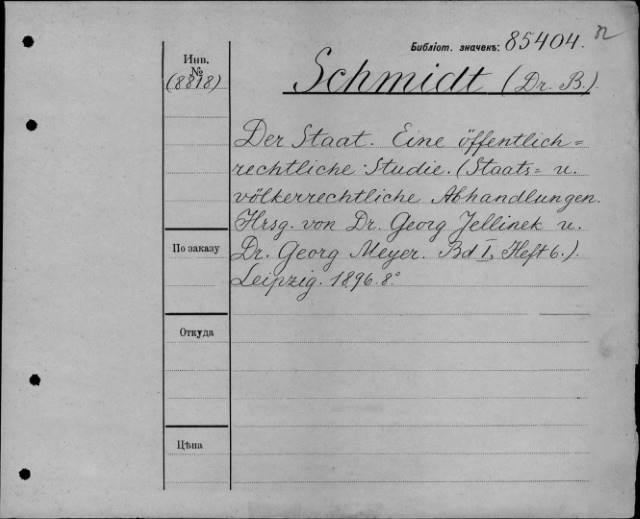 Библіот. значекъ: 85404. n
Инв.
№
(8818)
Schmidt (Dr. B.).
Der Staat. Eine öffentlich=
rechtliche Studie. (Staats= u.
völkerrechtliche Abhandlungen.
Hrsg. von Dr. Georg Jellinek u.
По заказу
Dr. Georg Meyer. Bd I, Heft 6.)
Leipzig. 1896. 8°
Откуда
Цѣна